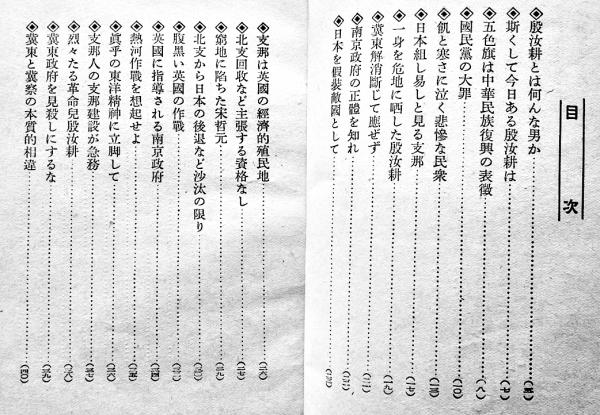 目次
◈殷汝耕とは何んな男か
◈斯くして今日ある殷汝耕は
◈五色旗は中華民族復興の表徴
◈國民黨の大罪
◈飢と寒さに泣く悲慘な民衆
◈日本組し易しと見る支那
◈一身を危地に晒した殷汝耕
◈冀東解消斷じて應ぜず
◈南京政府の正體を知れ
◈日本を假裝敵國として
◈支那は英國の經濟的殖民地
◈北支回收など主張する資格なし
◈窮地に陷ちた宋哲元
◈北支から日本の後退など沙汰の限り
◈腹黑い英國の作戰
◈英國に指導される南京政府
◈熱河作戰を想起せよ
◈眞乎の東洋精神に立脚して
◈支那人の支那建設が急務
◈烈々たる革命兒殷汝耕
◈冀東政府を見殺しにするな
◈冀東と冀察の本質的相違